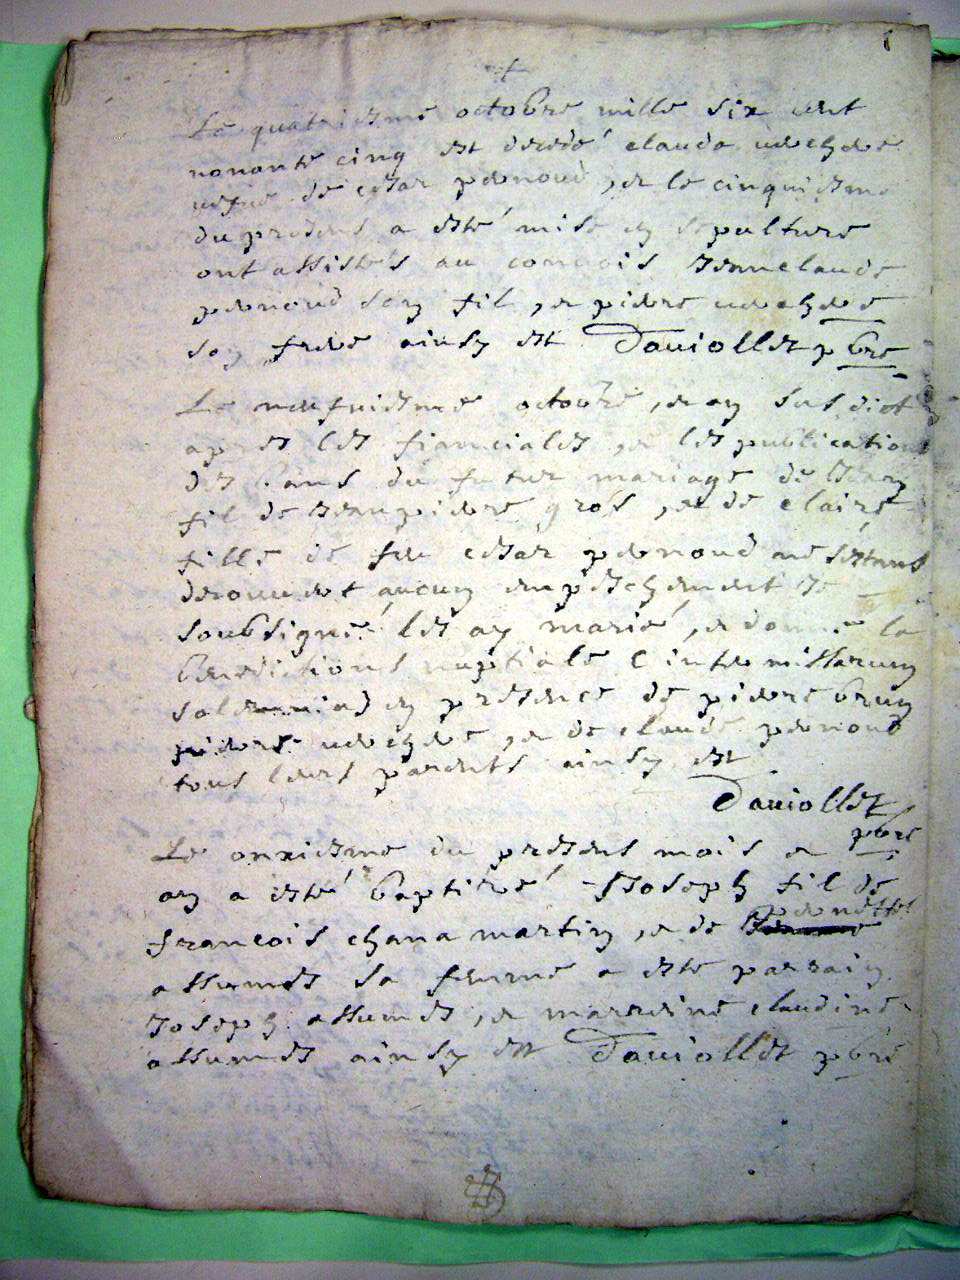 Le quatriesme octobre mille six cent
nonante cinq est decedé clauda verchere
vefue de cesar pernoud , et le cinquiesme
du present a esté mise en sepulture
ont assistés au convois Jean claude
pernoud son fil , et pierre verchere
son frere ainsy est Dauiollet pbre
Le neufuiesme octobre , et an susdict
apres les fianciales , et les publications
des bans du futur mariage de Jean
fil de Jean pierre gros , et de claire
fille de feu cesar pernoud ne s'estant
decouuert aucun empeschement Je
soubsigné les ay marié , et donné la
benediction nuptiale (inter missarum
solemnia) en presence de pierre brun
pierre verchere , et de claude pernoud
tous leurs parents ainsy est
Dauiollet
pbre
Le onziesme du present mois et
an a esté baptizé Joseph fil de
pernette
francois chanamartin , et de
assumes sa femme a este parrain
Joseph assumes , et marreine claudine
assumes ainsy est Dauiollet pbre